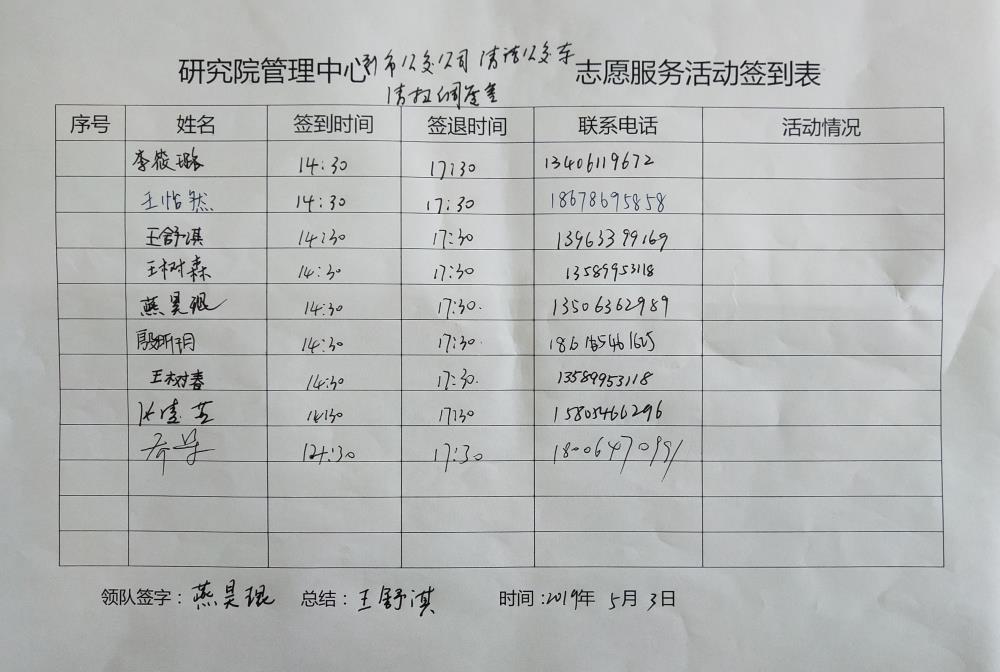 研究院管理中心到市公交公司清洁公交车志愿服务活动签到表
清扫
序号 姓名 签到时间 签退时间 联系电话 活动情况
李筱璐 14:30 17:30 13406119672
王怡然 14:30 17:30 18678695858
王舒淇 14:30 17:30 13963399169
王树森 14:30 17:30 13589953118
燕昊琨 14:30 17:30. 13506362989
殷昕玥 14:30 17:30.
王树春 14:30 17:30. 13589953118
14:30 17:30 15805466296
乔 14:30 17:30 18006470991
领队签字：燕昊琨 总结：王舒淇 时间:2019年 5月 3日